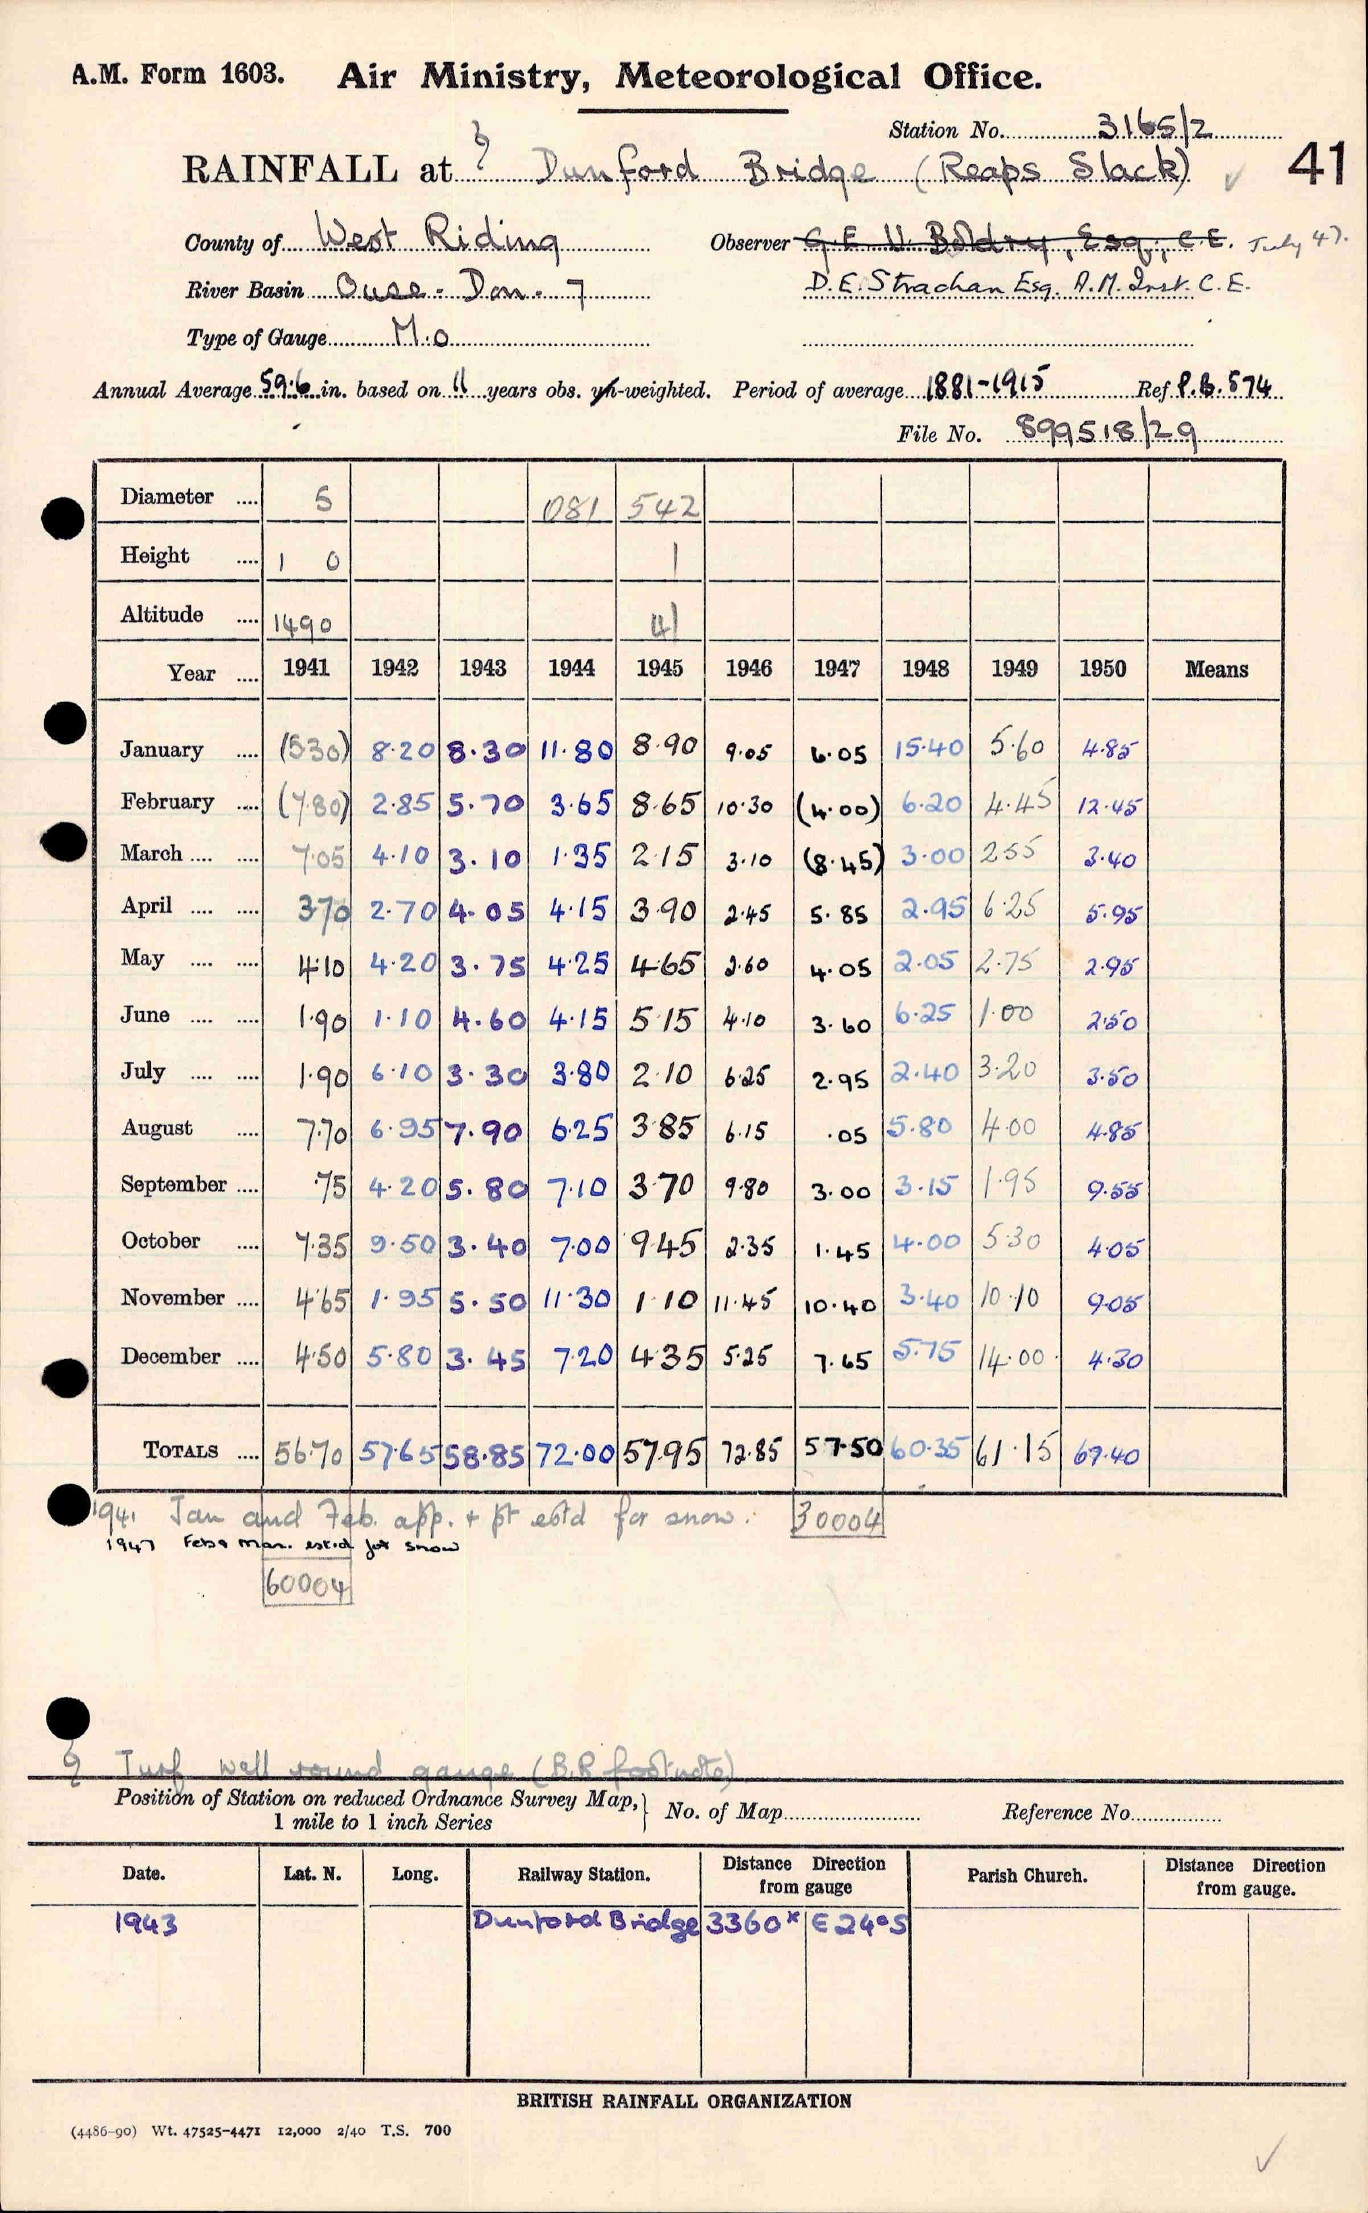 A.M. Form 1603. Air Ministry, Meteorological Office.
Station No. 3165/2
RAINFALL at Dunford Bridge (Reaps Slack) ✓ 41
County of West Riding Observer G.E. U. Boldry, Esq., C.E. July 47.
River Basin Ouse - Don - 7 D.E. Strachan Esq. A.M. Inst. C.E.
Type of Gauge M.O
Annual Average 59.6 in. based on 11 years obs. un-weighted. Period of average 1881-1915 Ref P.B. 574
File No. 899518/29
Diameter .... 5 081 542
Height .... 1 0 1
Altitude .... 1490 41
Year .... 1941 1942 1943 1944 1945 1946 1947 1948 1949 1950 Means
January .... (5.30) 8.20 8.30 11.80 8.90 9.05 6.05 15.40 5.60 4.85
February .... (7.80) 2.85 5.70 3.65 8.65 10.30 (4.00) 6.20 4.45 12.45
March .... .... 7.05 4.10 3.10 1.35 2.15 3.10 (8.45) 3.00 2.55 3.40
April .... .... 3.70 2.70 4.05 4.15 3.90 2.45 5.85 2.95 6.25 5.95
May .... .... 4.10 4.20 3.75 4.25 4.65 2.60 4.05 2.05 2.75 2.95
June .... .... 1.90 1.10 4.60 4.15 5.15 4.10 3.60 6.25 1.00 2.50
July .... .... 1.90 6.10 3.30 3.80 2.10 6.25 2.95 2.40 3.20 3.50
August .... 7.70 6.95 7.90 6.25 3.85 6.15 .05 5.80 4.00 4.85
September .... .75 4.20 5.80 7.10 3.70 9.80 3.00 3.15 1.95 9.55
October .... 7.35 9.50 3.40 7.00 9.45 2.35 1.45 4.00 5.30 4.05
November .... 4.65 1.95 5.50 11.30 1.10 11.45 10.40 3.40 10.10 9.05
December .... 4.50 5.80 3.45 7.20 4.35 5.25 7.65 5.75 14.00 4.30
TOTALS .... 56.70 57.65 58.85 72.00 57.95 72.85 57.50 60.35 61.15 67.40
1941 Jan and Feb. app. + pt estd for snow. 30004
1947 Feb & Mar. estd for snow
60004
Turf wall round gauge (B.R footnote)
Position of Station on reduced Ordnance Survey Map, } No. of Map Reference No.
1 mile to 1 inch Series
Date. Lat. N. Long. Railway Station. Distance Direction from gauge Parish Church. Distance Direction from gauge.
1943 Dunford Bridge 3360x E 24° S
BRITISH RAINFALL ORGANIZATION
(4486-90) Wt. 47525-4471 12,000 2/40 T.S. 700
✓